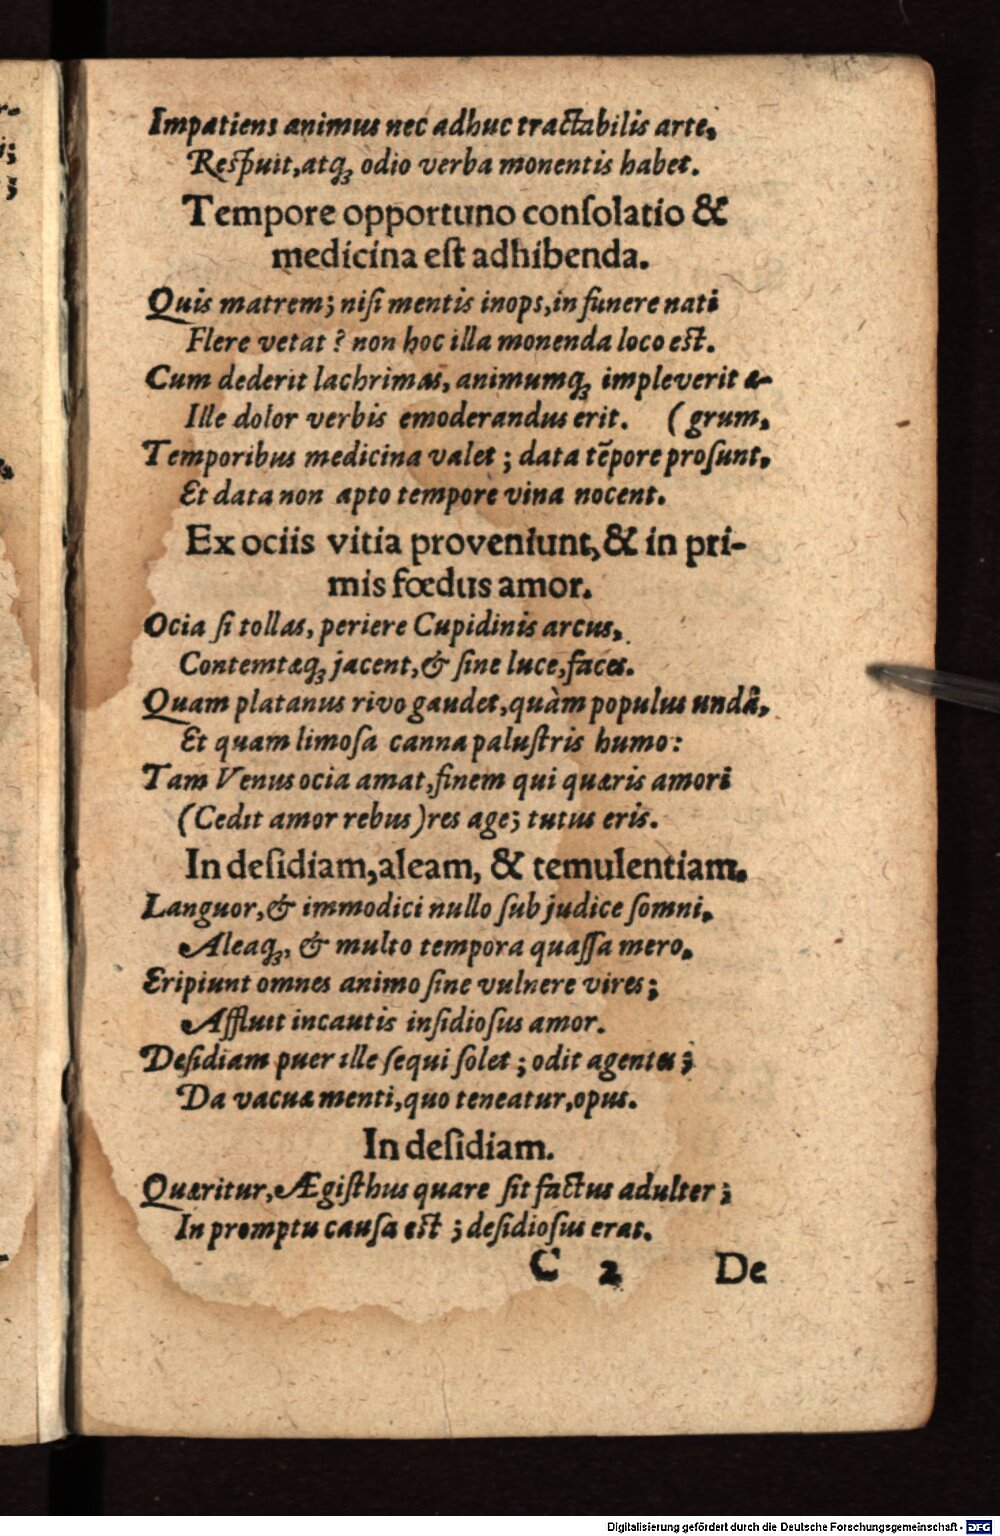 Impatiens animus nec adhuc tractabilis arte,
Reſpuit, atqꝫ odio verba monentis habet.
Tempore opportuno conſolatio &
medicina eſt adhibenda.
Quis matrem; niſi mentis inops, in funere nati
Flere vetat? non hoc illa monenda loco eſt.
Cum dederit lachrimas, animumqꝫ impleverit æ-
Ille dolor verbis emoderandus erit. (grum,
Temporibus medicina valet; data tēpore proſunt,
Et data non apto tempore vina nocent.
Ex ociis vitia proveniunt, & in pri-
mis fœdus amor.
Ocia ſi tollas, periere Cupidinis arcus,
Contemtæqꝫ jacent, & ſine luce, faces.
Quam platanus rivo gaudet, quàm populus undâ,
Et quam limoſa canna paluſtris humo:
Tam Venus ocia amat, finem qui quæris amori
(Cedit amor rebus) res age; tutus eris.
In deſidiam, aleam, & temulentiam.
Languor, & immodici nullo ſub judice ſomni,
Aleaqꝫ, & multo tempora quaſſa mero,
Eripiunt omnes animo ſine vulnere vires;
Affluit incautis inſidioſus amor.
Deſidiam puer ille ſequi ſolet; odit agentes;
Da vacuæ menti, quo teneatur, opus.
In deſidiam.
Quæritur, Ægiſthus quare ſit factus adulter;
In promptu cauſa eſt; deſidioſus erat.
C 2 De
Digitalisierung gefördert durch die Deutsche Forschungsgemeinschaft - DFG